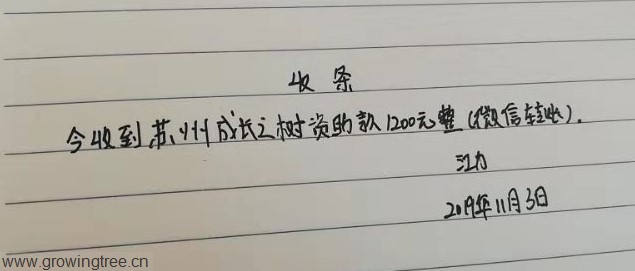 收条
今收到苏州成长之树资助款1200元整(微信转账).
江力
2019年11月3日
www.growingtree.cn